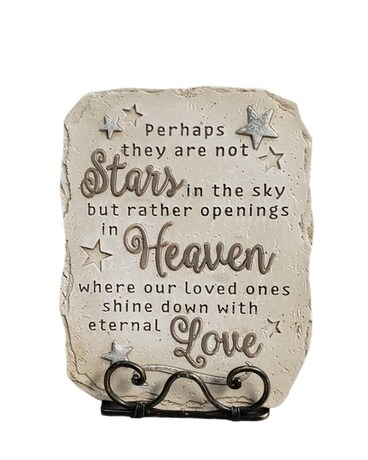 Perhaps
they are not
Stars in the sky
but rather openings
in Heaven
where our loved ones
shine down with
eternal Love